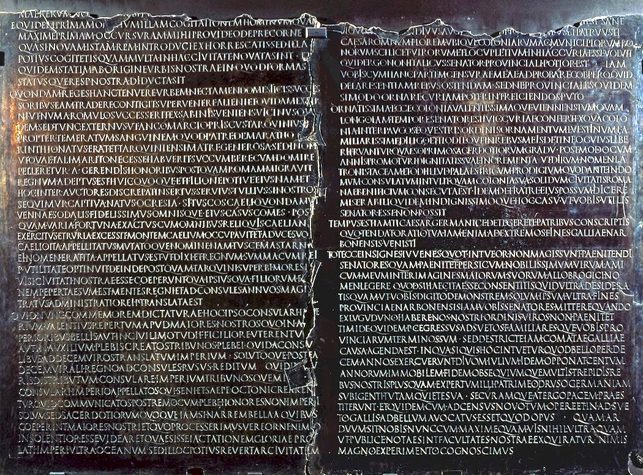 EQVIDEM PRIMAM OMNIVM ILLAM COGITATIONEM HOMINVM QVAM
MAXIME PRIMAM OCCVRSVRAM MIHI PROVIDEO DEPRECOR NE
QVASI NOVAM ISTAM REM INTRODVCI EXHORRESCATIS SED ILLA
POTIVS COGITETIS QVAM MVLTA IN HAC CIVITATE NOVATA SINT ET
QVIDEM STATIM AB ORIGINE VRBIS NOSTRAE IN QVOD FORMAS
STATVSQVE RES P NOSTRA DIDVCTA SIT
QVONDAM REGES HANC TENVERE VRBEM NEC TAMEN DOMESTICIS SVCCES
SORIBVS EAM TRADERE CONTIGIT SVPERVENERE ALIENI ET QVIDAM EXTER
NI VT NVMA ROMVLO SVCCESSERIT EX SABINIS VENIENS VICINVS QVI
DEM SED TVNC EXTERNVS VT ANCO MARCIO PRISCVS TARQVINIVS
PROPTER TEMERATVM SANGVINEM QVOD PATRE DEMARATHO
RINTHIO NATVS ERAT ET TARQVINIENSI MATRE GENEROSA SED INOPI
VT QVAE TALI MARITO NECESSE HABVERIT SVCCVMBERE CVM DOMI RE
PELLERETVR A GERENDIS HONORIBVS POSTQVAM ROMAM MIGRAVIT
REGNVM ADEPTVS EST HVIC QVOQVE ET FILIO NEPOTIVE EIVS NAM ET
HOC INTER AVCTORES DISCREPAT INSERTVS SERVIVS TVLLIVS SI NOSTROS
SEQVIMVR CAPTIVA NATVS OCRESIA SI TVSCOS CAELI QVONDAM VI
VENNAE SODALIS FIDELISSIMVS OMNISQVE EIVS CASVS COMES POST
QVAM VARIA FORTVNA EXACTVS CVM OMNIBVS RELIQVIS CAELIANI
EXERCITVS ETRVRIA EXCESSIT MONTEM CAELIVM OCCVPAVIT ET A DVCE SVO
CAELIO ITA APPELLITATVS MVTATOQVE NOMINE NAM TVSCE MASTARNA
EI NOMEN ERAT ITA APPELLATVS EST VT DIXI ET REGNVM SVMMA CVM REI
P VTILITATE OPTINVIT DEINDE POSTQVAM TARQVINI SVPERBI MORES IN
VISI CIVITATI NOSTRAE ESSE COEPERVNT QVA IPSIVS QVA FILIORVM EIVS
NEMPE PERTAESVM EST MENTES REGNI ET AD CONSVLES ANNVOS MAGIS
TRATVS ADMINISTRATIO REI P TRANSLATA EST
QVID NVNC COMMEMOREM DICTATVRAE HOC IPSO CONSVLARI IMPE
RIVM VALENTIVS REPERTVM APVD MAIORES NOSTROS QVO IN AS
PERIORIBVS BELLIS AVT IN CIVILI MOTV DIFFICILIORE VTERENTVR
AVT IN AVXILIVM PLEBIS CREATOS TRIBVNOS PLEBEI QVID A CONSV
LIBVS AD DECEMVIROS TRANSLATVM IMPERIVM SOLVTOQVE POSTEA
DECEMVIRALI REGNO AD CONSVLES RVSVS REDITVM QVID IN
RIS DISTRIBVTVM CONSVLARE IMPERIVM TRIBVNOSQVE
CONSVLARI IMPERIO APPELLATOS QVI SENI ET SAEPE OCTONI CREAREN
TVR QVID COMMVNICATOS POSTREMO CVM PLEBE HONORES NON IMPERI
SOLVM SED SACERDOTIORVM QVOQVE IAM SI NARREM BELLA A QVIBVS
COEPERINT MAIORES NOSTRI ET QVO PROCESSERIMVS VEREOR NE NIMIO
INSOLENTIOR ESSE VIDEAR ET QVAESISSE IACTATIONEM GLORIAE PRO
LATI IMPERI VLTRA OCEANVM SED ILLOC POTIVS REVERTAR CIVITATEM
CAESAR OMNEM FLOREM VBIQVE COLONIARVM AC MVNICIPIORVM BO
NORVM SCILICET VIRORVM ET LOCVPLETIVM IN HAC CVRIA ESSE VOLVIT
QVID ERGO NON ITALICVS SENATOR PROVINCIALI POTIOR EST IAM
VOBIS CVM HANC PARTEM CENSVRAE MEAE ADPROBARE COEPERO QVID
DE EA RE SENTIAM REBVS OSTENDAM SED NE PROVINCIALES QVIDEM
SI MODO ORNARE CVRIAM POTERINT REICIENDOS PVTO
ORNATISSIMA ECCE COLONIA VALENTISSIMAQVE VIENNENSIVM QVAM
LONGO IAM TEMPORE SENATORES HVIC CVRIAE CONFERT EX QVA COLO
NIA INTER PAVCOS EQVESTRIS ORDINIS ORNAMENTVM L VESTINVM FA
MILIARISSIME DILIGO ET HODIEQVE IN REBVS MEIS DETINEO CVIVS LIBE
RI FRVANTVR QVAESO PRIMO SACERDOTIORVM GRADV POSTMODO CVM
ANNIS PROMOTVRI DIGNITATIS SVAE INCREMENTA VT DIRVM NOMEN LA
TRONIS TACEAM ET ODI ILLVD PALAESTRICVM PRODIGIVM QVOD ANTE IN DO
MVM CONSVLATVM INTVLIT QVAM COLONIA SVA SOLIDVM CIVITATIS ROMA
NAE BENIFICIVM CONSECVTA EST IDEM DE FRATRE EIVS POSSVM DICERE
MISERABILI QVIDEM INDIGNISSIMOQVE HOC CASV VT VOBIS VTILIS
SENATOR ESSE NON POSSIT
TEMPVS EST IAM TI CAESAR GERMANICE DETEGERE TE PATRIBVS CONSCRIPTIS
QVO TENDAT ORATIO TVA IAM ENIM AD EXTREMOS FINES GALLIAE NAR
BONENSIS VENISTI
TOT ECCE INSIGNES IVVENES QVOT INTVEOR NON MAGIS SVNT PAENITENDI
SENATORES QVAM PAENITET PERSICVM NOBILISSIMVM VIRVM AMI
CVM MEVM INTER IMAGINES MAIORVM SVORVM ALLOBROGICI NO
MEN LEGERE QVOD SI HAEC ITA ESSE CONSENTITIS QVID VLTRA DESIDERA
TIS QVAM VT VOBIS DIGITO DEMONSTREM SOLVM IPSVM VLTRA FINES
PROVINCIAE NARBONENSIS IAM VOBIS SENATORES MITTERE QVANDO
EX LVGVDVNO HABERE NOS NOSTRI ORDINIS VIROS NON PAENITET
TIMIDE QVIDEM P C EGRESSVS ADSVETOS FAMILIARESQVE VOBIS PRO
VINCIARVM TERMINOS SVM SED DESTRICTE IAM COMATAE GALLIAE
CAVSA AGENDA EST IN QVA SI QVIS HOC INTVETVR QVOD BELLO PER DE
CEM ANNOS EXERCVERVNT DIVOM IVLIVM IDEM OPPONAT CENTVM
ANNORVM IMMOBILEM FIDEM OBSEQVIVMQVE MVLTIS TREPIDIS RE
BVS NOSTRIS PLVSQVAM EXPERTVM ILLI PATRI MEO DRVSO GERMANIAM
SVBIGENTI TVTAM QVIETE SVA SECVRAMQVE A TERGO PACEM PRAES
TITERVNT ET QVIDEM CVM AD CENSVS NOVO TVM OPERE ET INADSVE
TO GALLIS AD BELLVM AVOCATVS ESSET QVOD OPVS QVAM AR
DVVM SIT NOBIS NVNC CVM MAXIME QVAMVIS NIHIL VLTRA QVAM
VT PVBLICE NOTAE SINT FACVLTATES NOSTRAE EXQVIRATVR NIMIS
MAGNO EXPERIMENTO COGNOSCIMVS